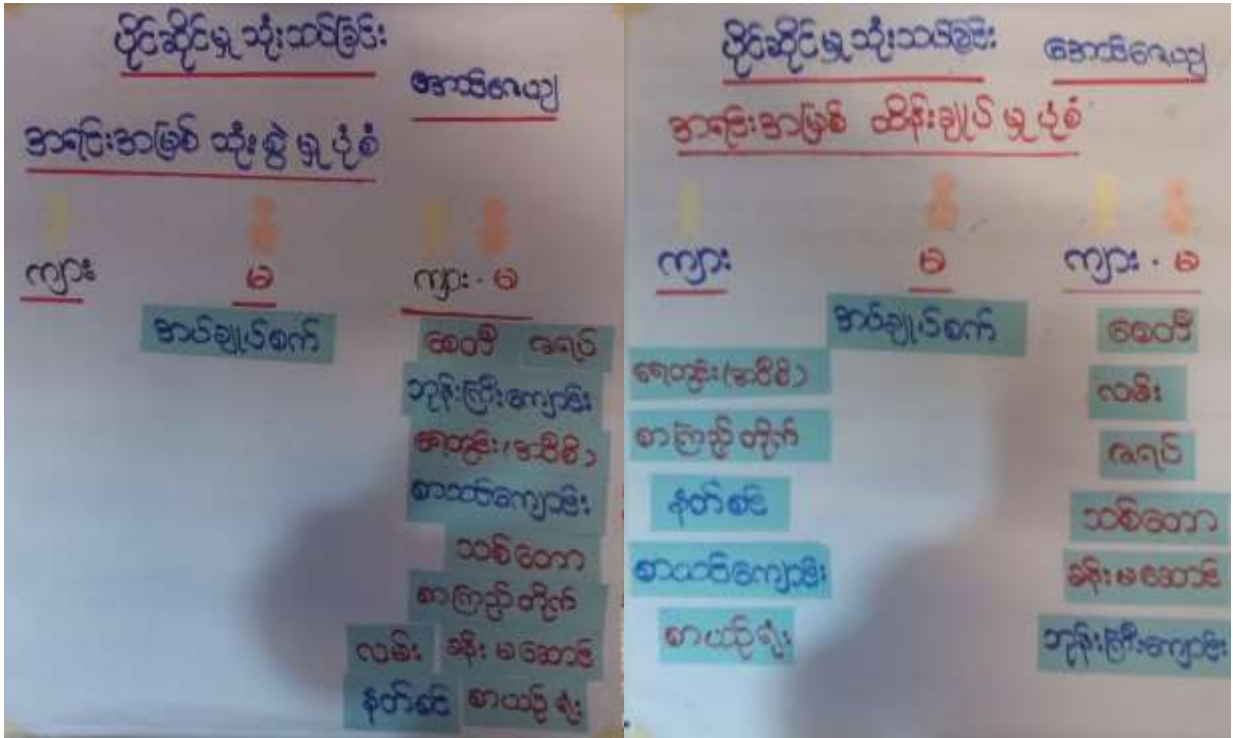 ပိုင်ဆိုင်မှု သုံးသပ်ခြင်း
အောင်ဇေယျ
အရင်းအမြစ် သုံးစွဲမှုပုံစံ
ကျား
မ
ကျား - မ
အပ်ချုပ်စက်
စေတီ ဇရပ်
ဘုန်းကြီးကျောင်း
ရေတွင်း(အဝီစိ)
စာသင်ကျောင်း
သစ်တော
စာကြည့်တိုက်
လမ်း ခန်းမဆောင်
နတ်စင် စာယဉ်ရုံး
ပိုင်ဆိုင်မှု သုံးသပ်ခြင်း
အောင်ဇေယျ
အရင်းအမြစ် ထိန်းချုပ်မှုပုံစံ
ကျား
မ
ကျား - မ
အပ်ချုပ်စက်
ရေတွင်း(အဝီစိ)
စာကြည့်တိုက်
နတ်စင်
စာသင်ကျောင်း
စာယဉ်ရုံး
စေတီ
လမ်း
ဇရပ်
သစ်တော
ခန်းမဆောင်
ဘုန်းကြီးကျောင်း